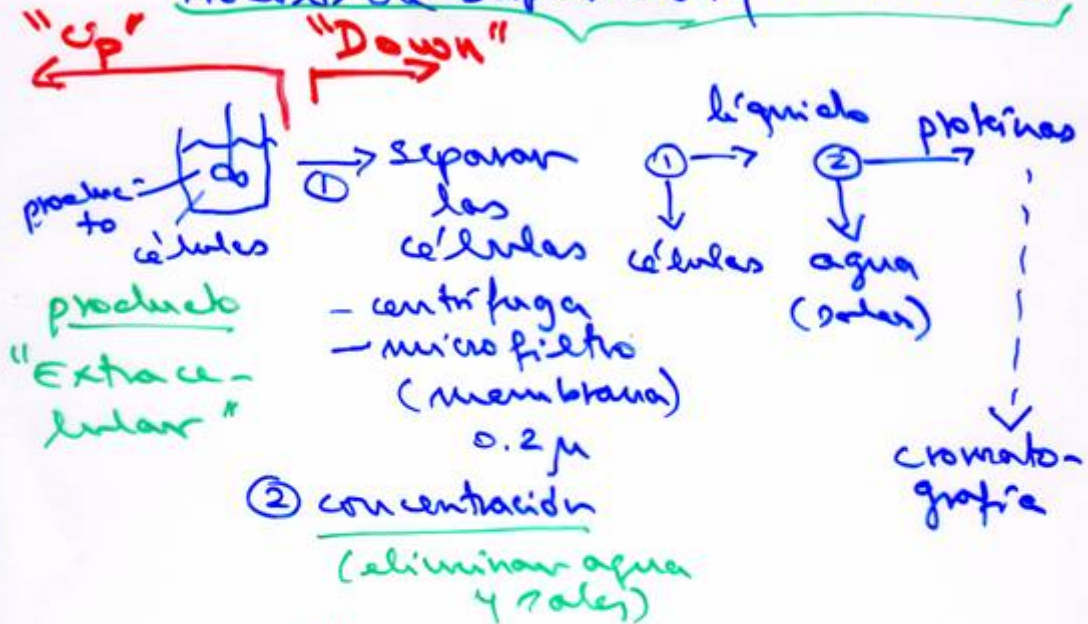 "Up"
"Down"
produc-
to
células
①
separar
las
células
- centrífuga
- microfiltro
(membrana)
0.2 μ
producto
"Extrace-
lular"
② concentración
(eliminar agua
y sales)
① líquido ② proteínas
células agua
(sales)
cromato-
grafía